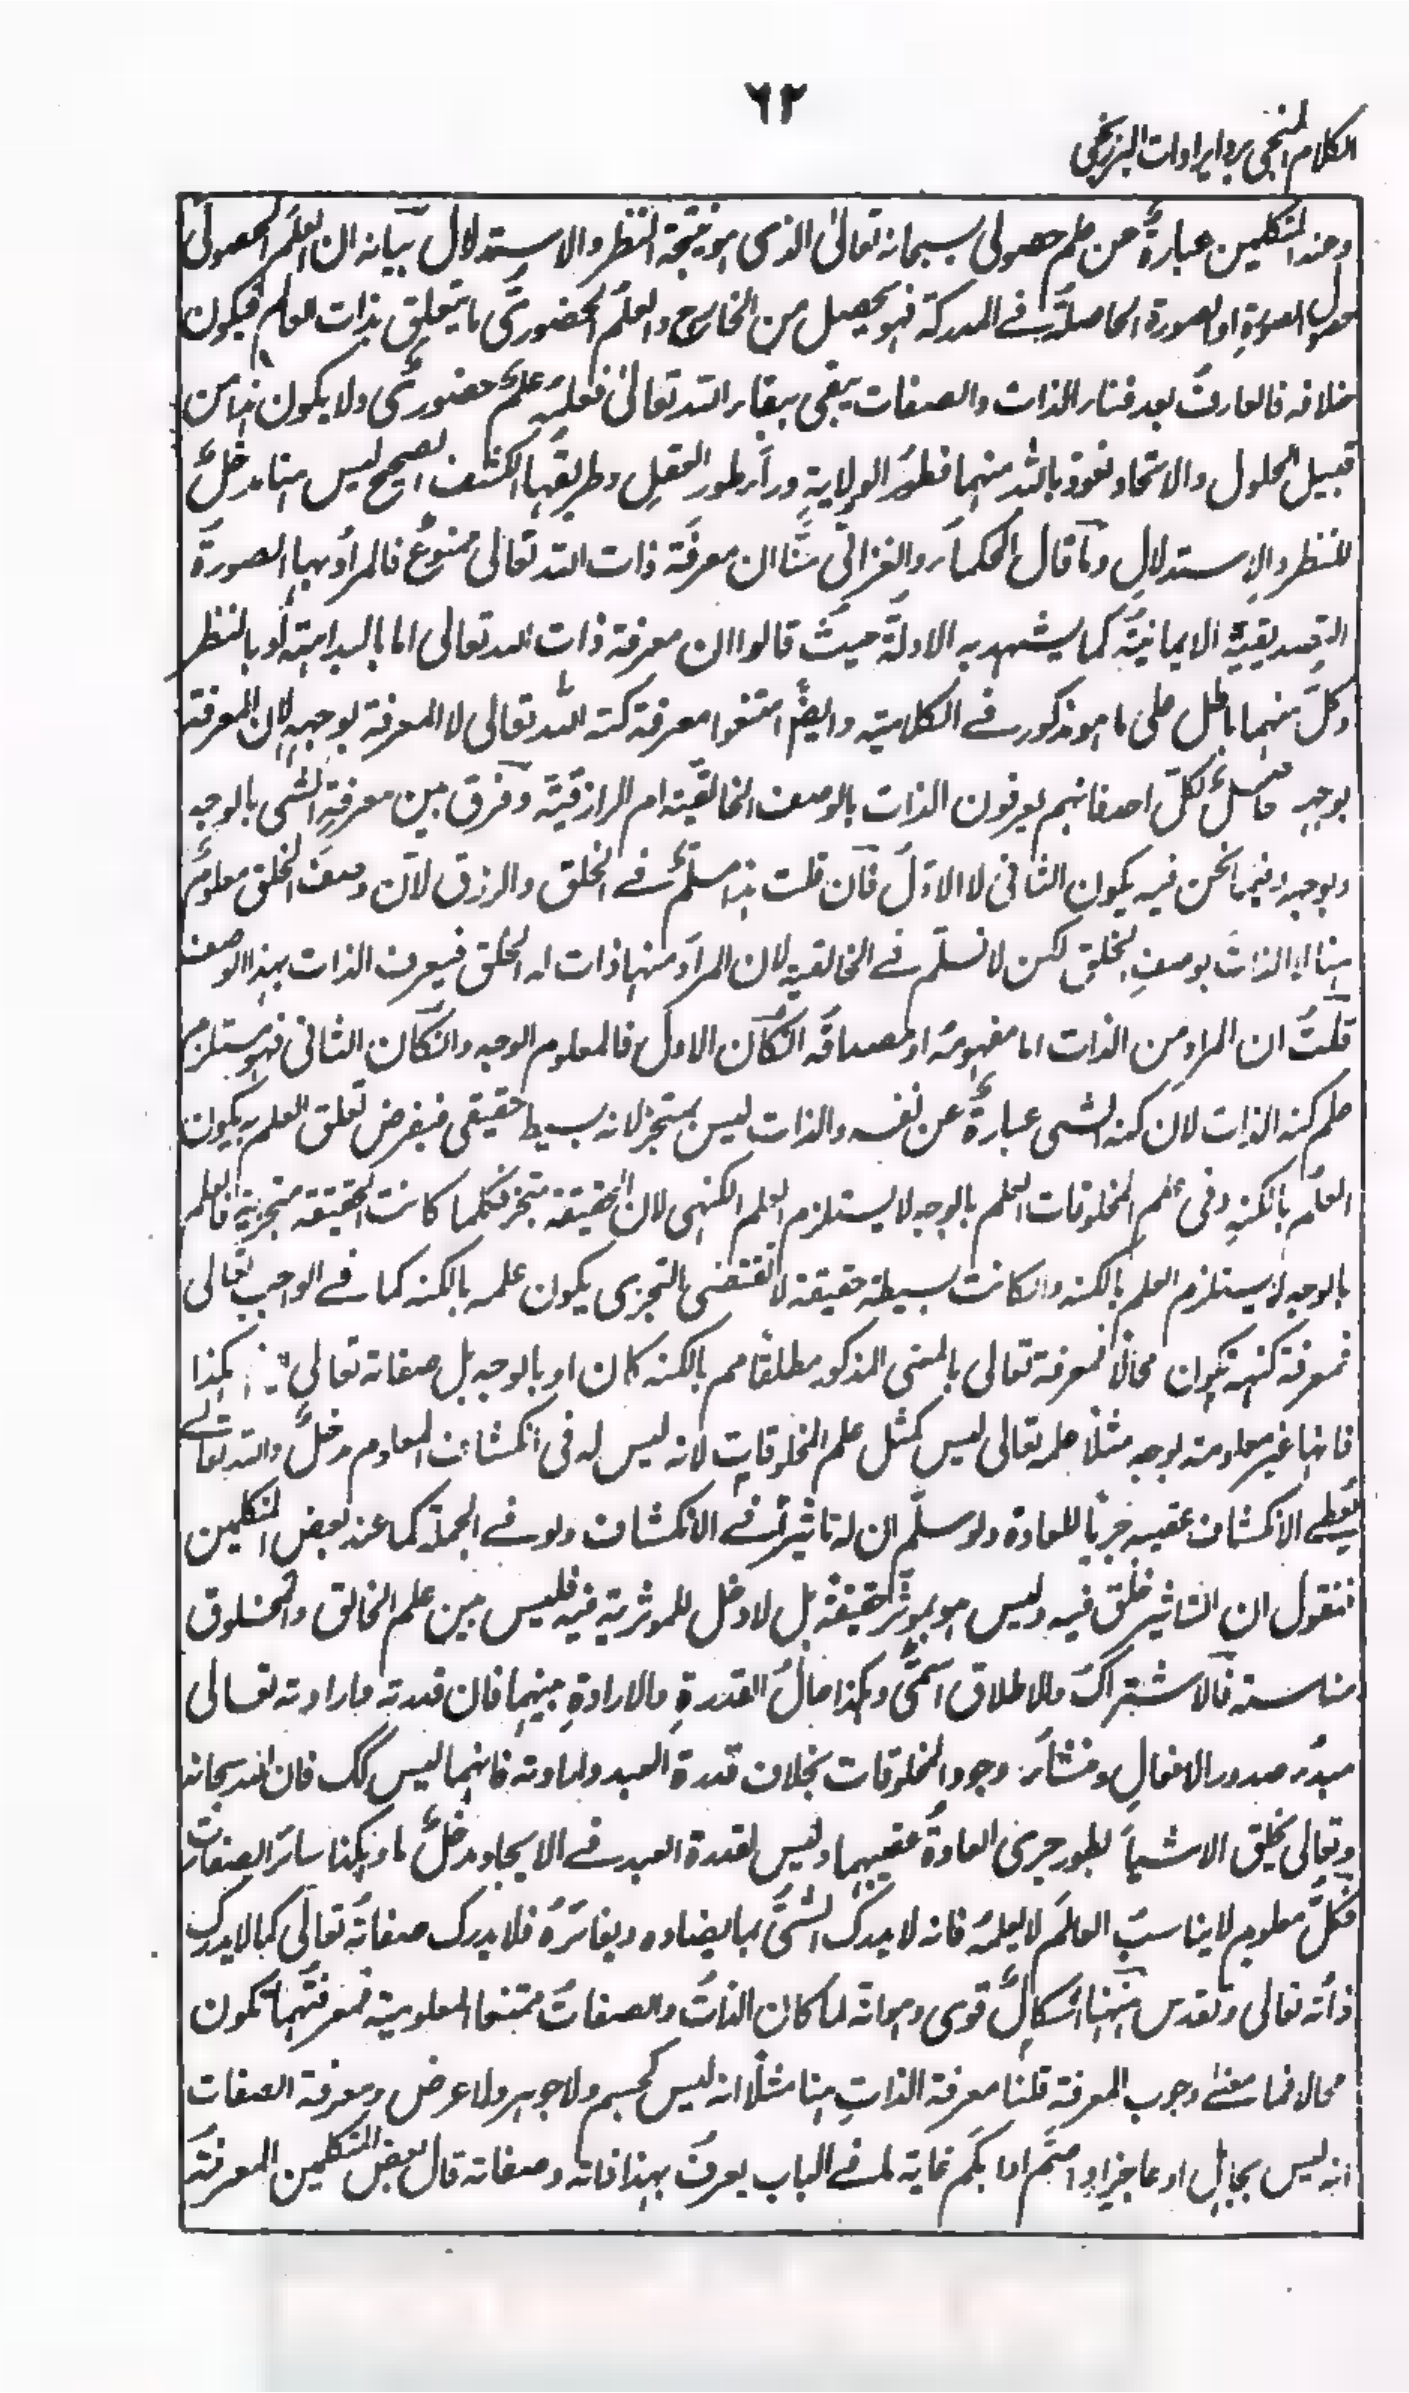 ٦٢
الكلام المنجى برد ايرادات البرزنجى
وعند المتكلمين عبارةٌ عن علم حصولى سبحانه تعالىٰ الذى هو نتيجة النظر والاستدلال بيانه ان العلم الحصولى
حصول الصورة او الصورة الحاصلة فے المدركة فهو يحصل من الخارج والعلم الحضورىّ ما يتعلق بذات العالم فيكون
خلافه فالعارف بعد فناء الذات والصفات يبقى ببقاء الله تعالىٰ فعلمه علمٌ حضورىٌّ ولا يكون هذا من
قبيل الحلول والاتحاد نعوذ بالله منهما فطورُ الولايةِ وراء طور العقلِ وطريقها الكشف الصحيح ليس هنا مدخلٌ
للنظر والاستدلالِ وما قال الحكماء والغزالى منّا ان معرفة ذات الله تعالى ممنوعٌ فالمراد بها الصورة
التصديقية الايمانية كما يشهد به الادلة حيث قالوا ان معرفة ذات الله تعالى اما بالبداهة او بالنظر
وكلّ منهما باطل على ما هو مذكور فے الكلامية وايضًا امتنعوا معرفة كنه الله تعالى لا المعرفة بوجهه لان المعرفة
بوجهٍ حاصلٌ لكلّ احد فانهم يعرفون الذات بالوصف الخالقية ام الرازقية وفرق بين معرفةِ الشى بالوجه
وبوجهه وفيما نحن فيه يكون الثانى لا الاول فان قلت هذا مسلّم فے الخلق والرزق لان وصف الخلق معلوم
هنا لا الذات بوصفِ الخلق لكن لا نسلّم فے الخالقية لان المراد منها ذات له الخلق فيعرف الذات بهذا الوصف
قلت ان المراد من الذات اما مفهومه او مصداقه ان كان الاول فالمعلوم الوجه وان كان الثانى فهو مستلزم
علم كنه الذات لان كنه الشى عبارةٌ عن نفسه والذات ليس بمتجز لانه بسيط حقيقى فبفرض تعلق العلم به يكون
العلم بالكنهِ وفى علم المخلوقات العلم بالوجه لا يستلزم العلم الكنهى لان الحقيقة متجز فكلما كانت الحقيقة متجزية فالعلم
بالوجه لا يستلزم العلم بالكنه وان كانت بسيطة حقيقة لا تقتضى بالتجزى يكون علمه بالكنه كما فے الواجب تعالى
فمعرفة كنهه تكون محالًا فمعرفة تعالى بالمعنى المذكور مطلقًا مم بالكنه كان او بالوجه بل صفاته تعالى هكذا
فانها غير معلومة بوجه مثلًا علمه تعالى ليس كمثل علم المخلوقات لانه ليس له فى انكشاف المعلوم مدخلٌ والله تعالےٰ
يعطے الانكشاف عقيبه جريًا للعادة ولو سلّم ان له تاثيرا فے الانكشاف ولو فے الجملة كما عند بعض المتكلمين
فنقول ان التاثير خلق فيه وليس هو بموثر حقيقة بل لا دخل للموثرية فيه فليس بين علم الخالق والمخلوق
مناسبة فالاشتراك والاطلاق اسمىّ وهكذا حال القدرةِ والارادةِ بينهما فان قدرته وارادته تعالى
مبدء صدور الافعالِ ومنشاء وجود المخلوقات بخلاف قدرة العبد وارادته فانهما ليس كك فان الله سبحانه
وتعالى يخلق الاشياء بطور جرى العادة عقيبهما وليس لقدرة العبد فے الايجاد مدخلٌ ما وهكذا سائر الصفات
فكلّ معلوم لا يناسب العالم لا يعلمه فانه لا يدرك الشىّ بما يضاده ويغائره فلا يدرك صفاته تعالى كما لا يدرك
ذاته تعالى وتقدس ههنا اشكالٌ قوى وهو انه لما كان الذات والصفات ممتنعا المعلومية فمعرفتهما تكون
محالا فما معنےٰ وجوب المعرفة قلنا معرفة الذاتِ هنا مثلًا انه ليس كجسم ولا جوهر ولا عرض ومعرفة الصفات
انه ليس بجاهل او عاجز او اصم او ابكم غاية ما فے الباب يعرف بهذا ذاته وصفاته قال بعض المتكلمين المعرفة